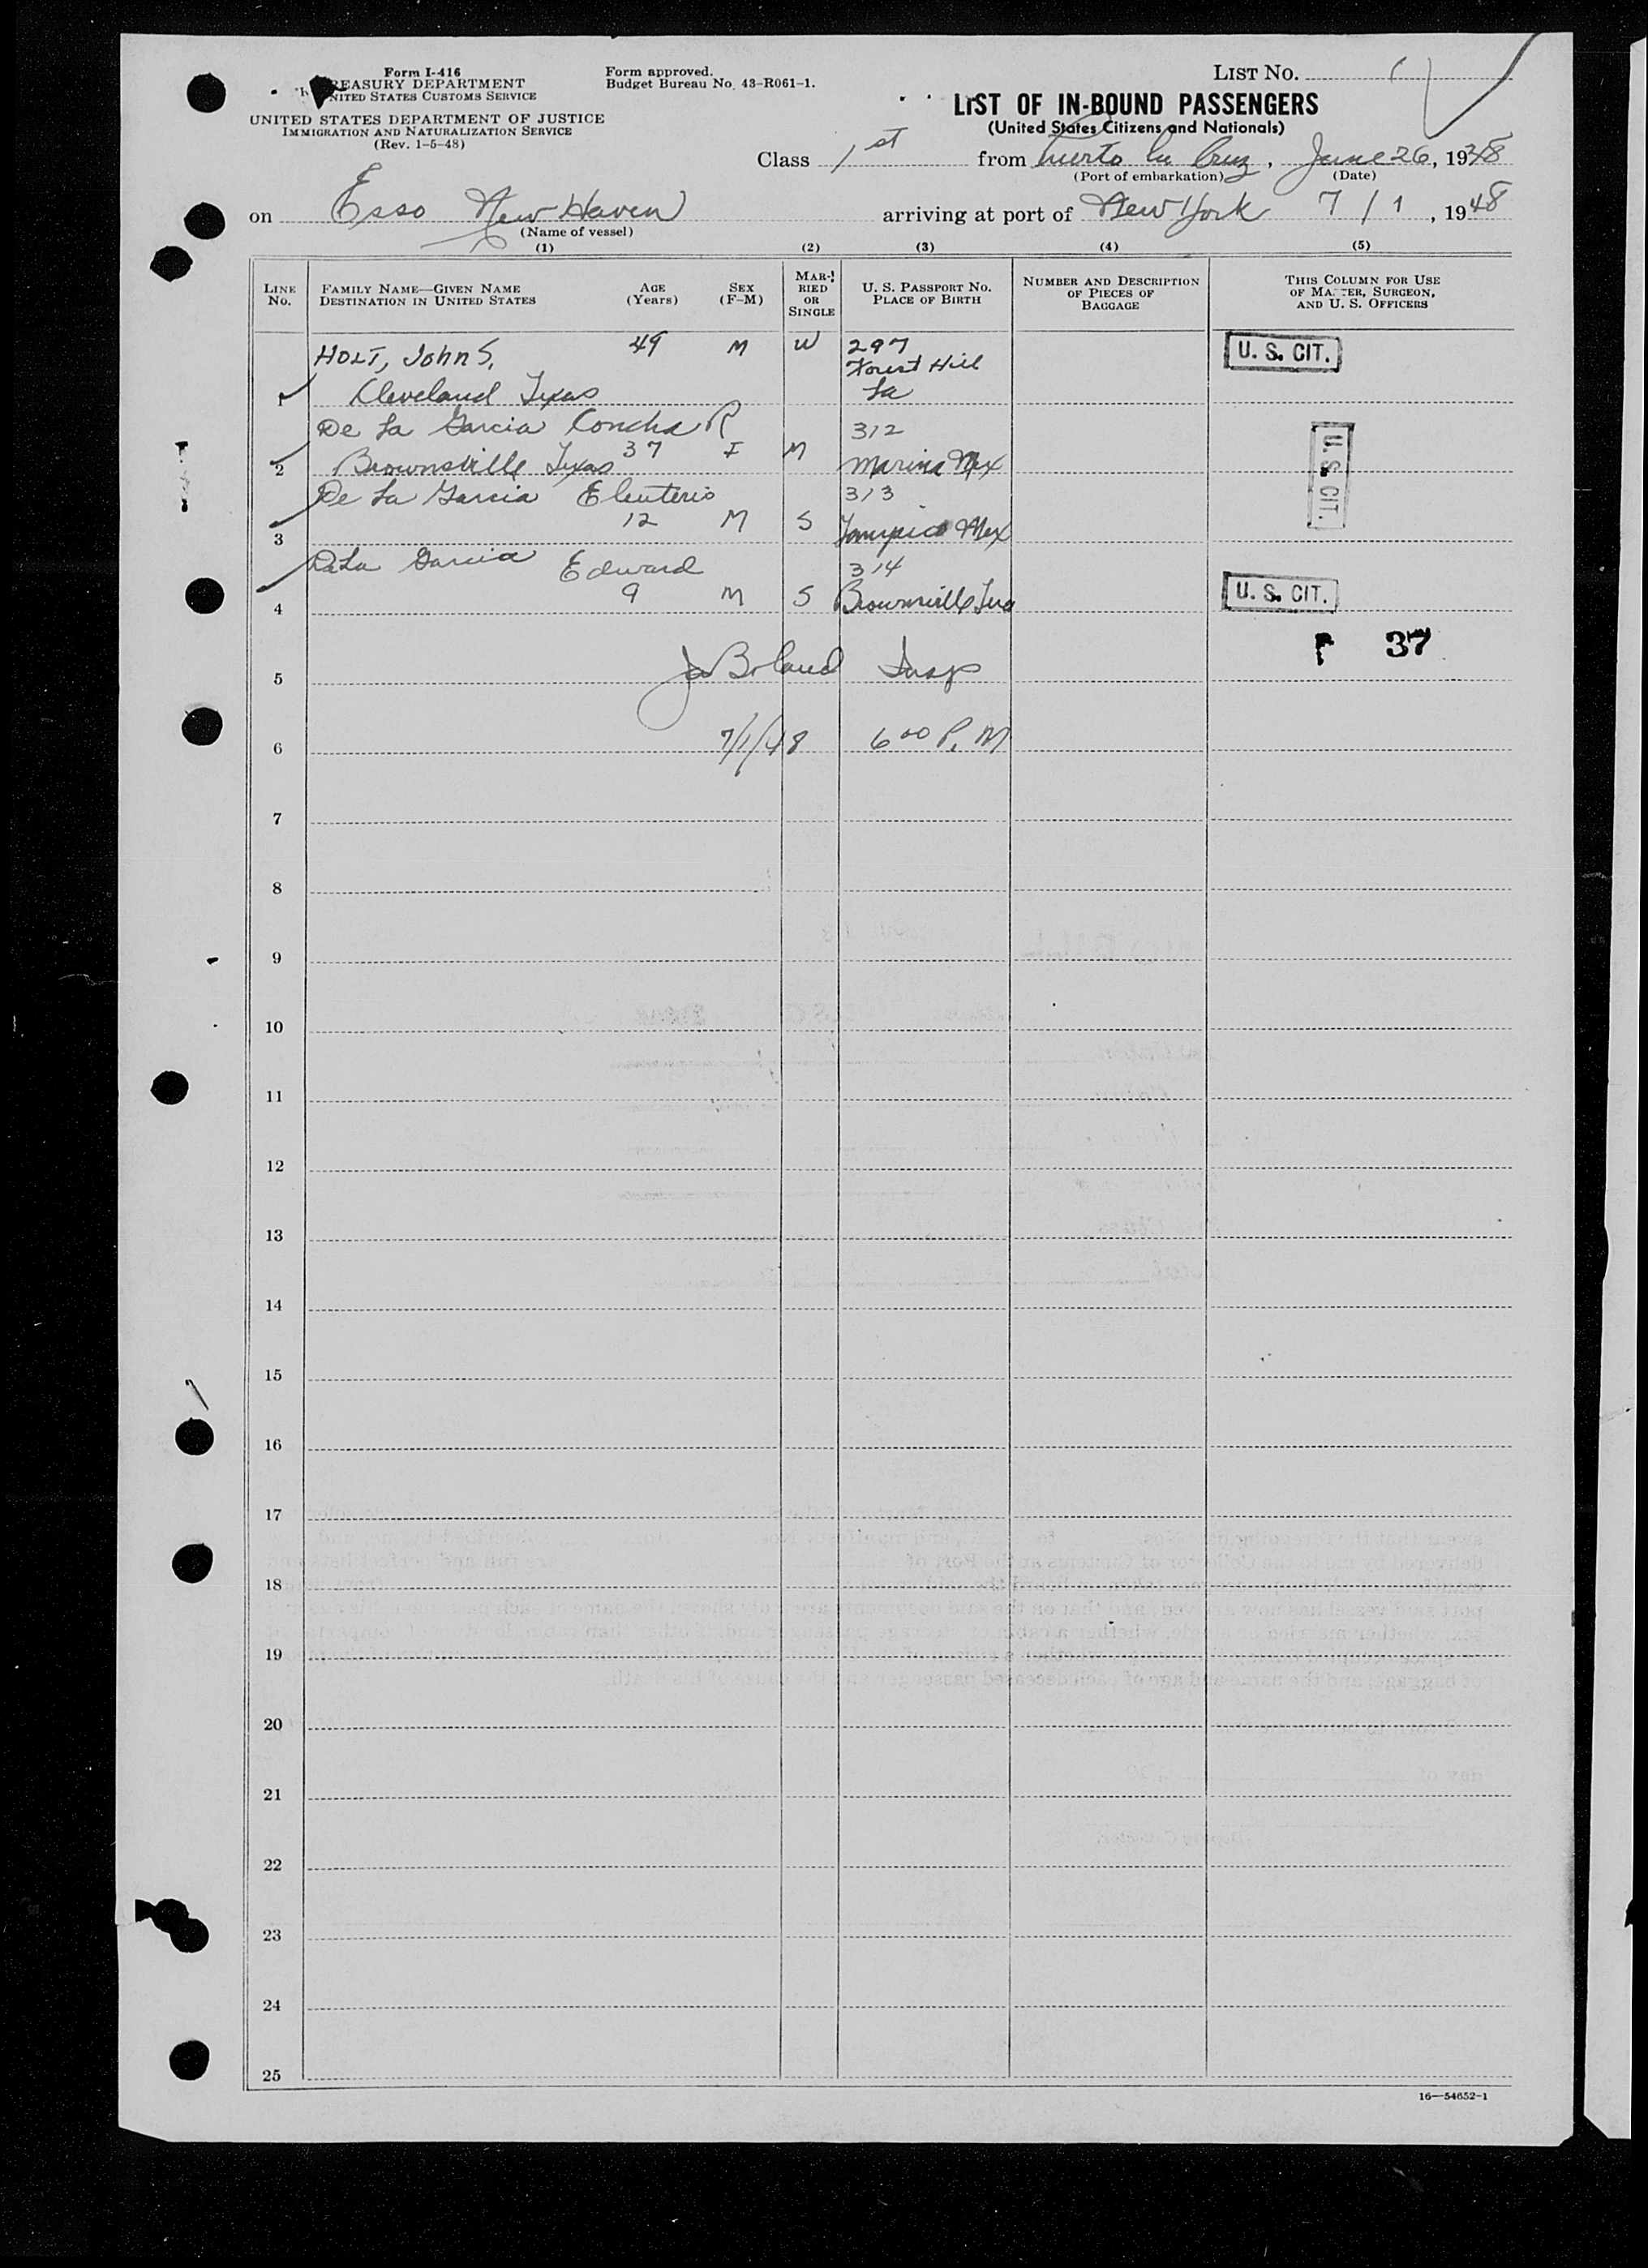 Form I-416
TREASURY DEPARTMENT
UNITED STATES CUSTOMS SERVICE
UNITED STATES DEPARTMENT OF JUSTICE
IMMIGRATION AND NATURALIZATION SERVICE
(Rev. 1-5-48)
Form approved.
Budget Bureau No. 43-R061-1.
LIST No. 1
LIST OF IN-BOUND PASSENGERS
(United States Citizens and Nationals)
Class 1st from Puerto la Cruz, June 26, 1948
(Port of embarkation) (Date)
on Esso New Haven arriving at port of New York 7/1, 1948
(Name of vessel)
(1) (2) (3) (4) (5)
LINE No. FAMILY NAME—GIVEN NAME DESTINATION IN UNITED STATES AGE (Years) SEX (F-M) MARRIED OR SINGLE U. S. PASSPORT No. PLACE OF BIRTH NUMBER AND DESCRIPTION OF PIECES OF BAGGAGE THIS COLUMN FOR USE OF MASTER, SURGEON, AND U. S. OFFICERS
HOLT, John S. 49 M W 297 U. S. CIT.
Forest Hill
1 Cleveland Texas La
De La Garcia Concha R 312
2 Brownsville Texas 37 F M Marina Mex U. S. CIT.
De La Garcia Eleuterio 313
3 12 M S Tampico Mex
De La Garcia Edward 314
4 9 M S Brownsville Texa U. S. CIT.
37
5 Boland Insp
6 7/1/48 6 00 P. M
7
8
9
10
11
12
13
14
15
16
17
18
19
20
21
22
23
24
25
16—54652-1